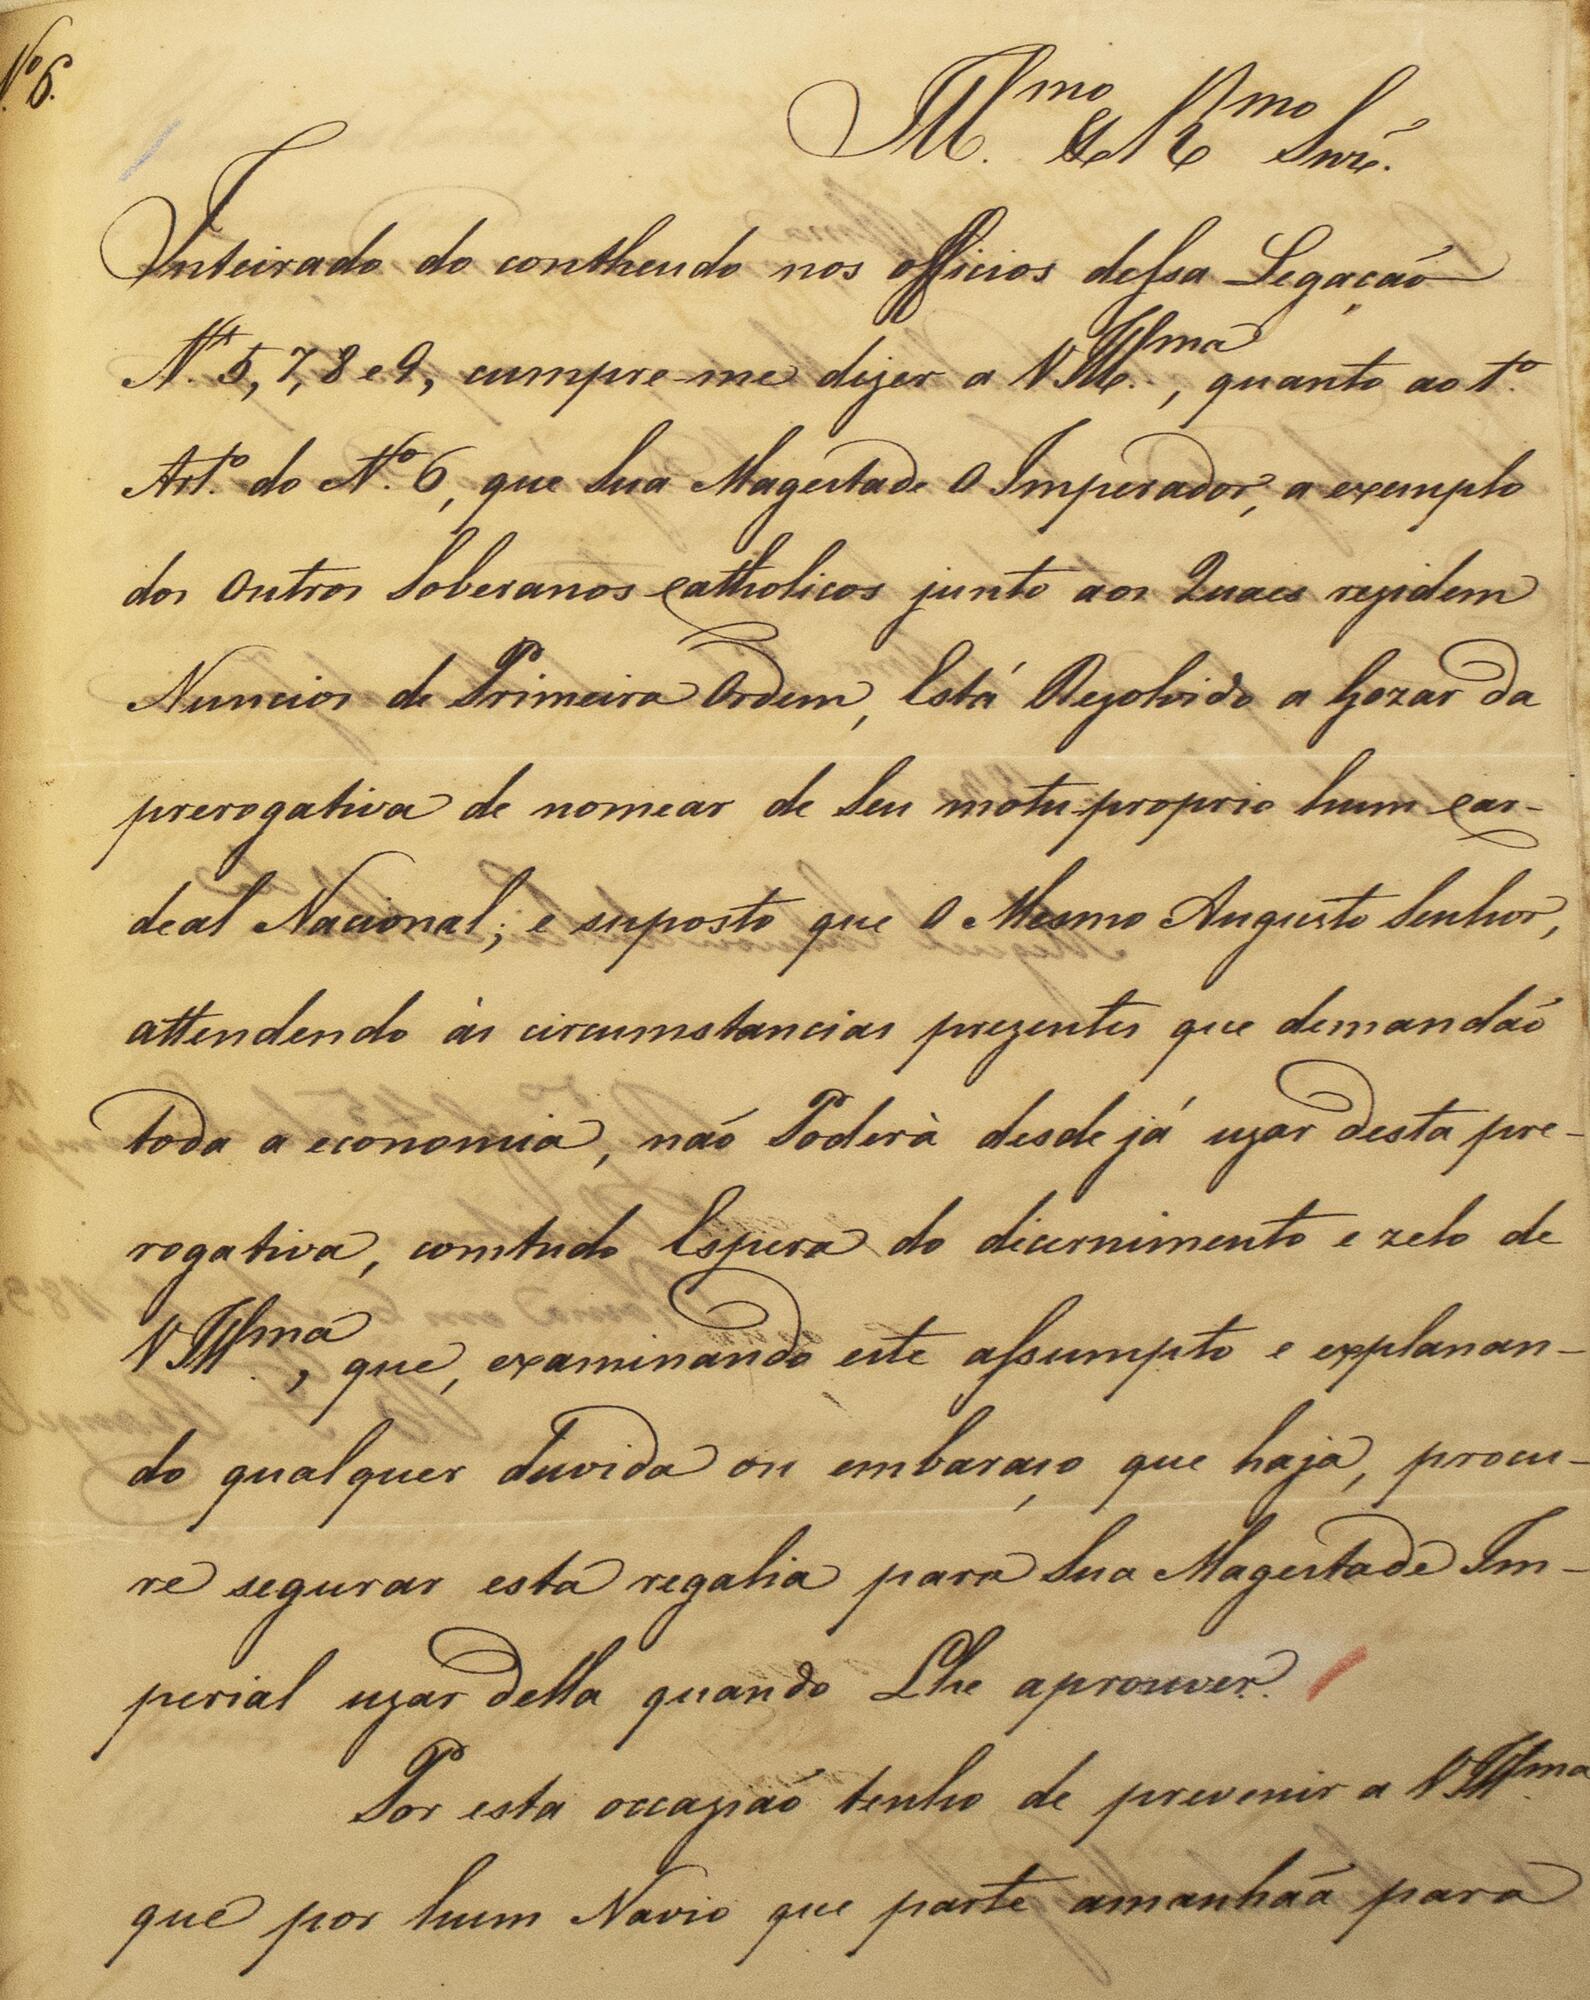 N.º 6.
Ill.mo e R.mo Snr.
Inteirado do contheudo nos officios dessa Legação
N.os 5, 7, 8 e 9, cumpre-me dizer a V. Ill.ma, quanto ao 1.º
Art.º do N.º 6, que Sua Magestade O Imperador, a exemplo
dos Outros Soberanos Catholicos junto aos Quaes rezidem
Nuncios de Primeira Ordem, Está Rezolvido a Gozar da
prerogativa de nomear de Seu motu-proprio hum Car-
deal Nacional; e suposto que O Mesmo Augusto Senhor,
attendendo ás circumstancias prezentes que demandão
toda a economia, não Poderà desde já uzar desta pre-
rogativa, comtudo Espera do dicernimento e zelo de
V. Ill.ma, que, examinando este assumpto e explanan-
do qualquer duvida ou embaraço que haja, procu-
re segurar esta regalia para Sua Magestade Im-
perial uzar della quando Lhe aprouver.
Por esta occazião tenho de prevenir a V. Ill.ma
que por hum Navio que parte amanhãa para